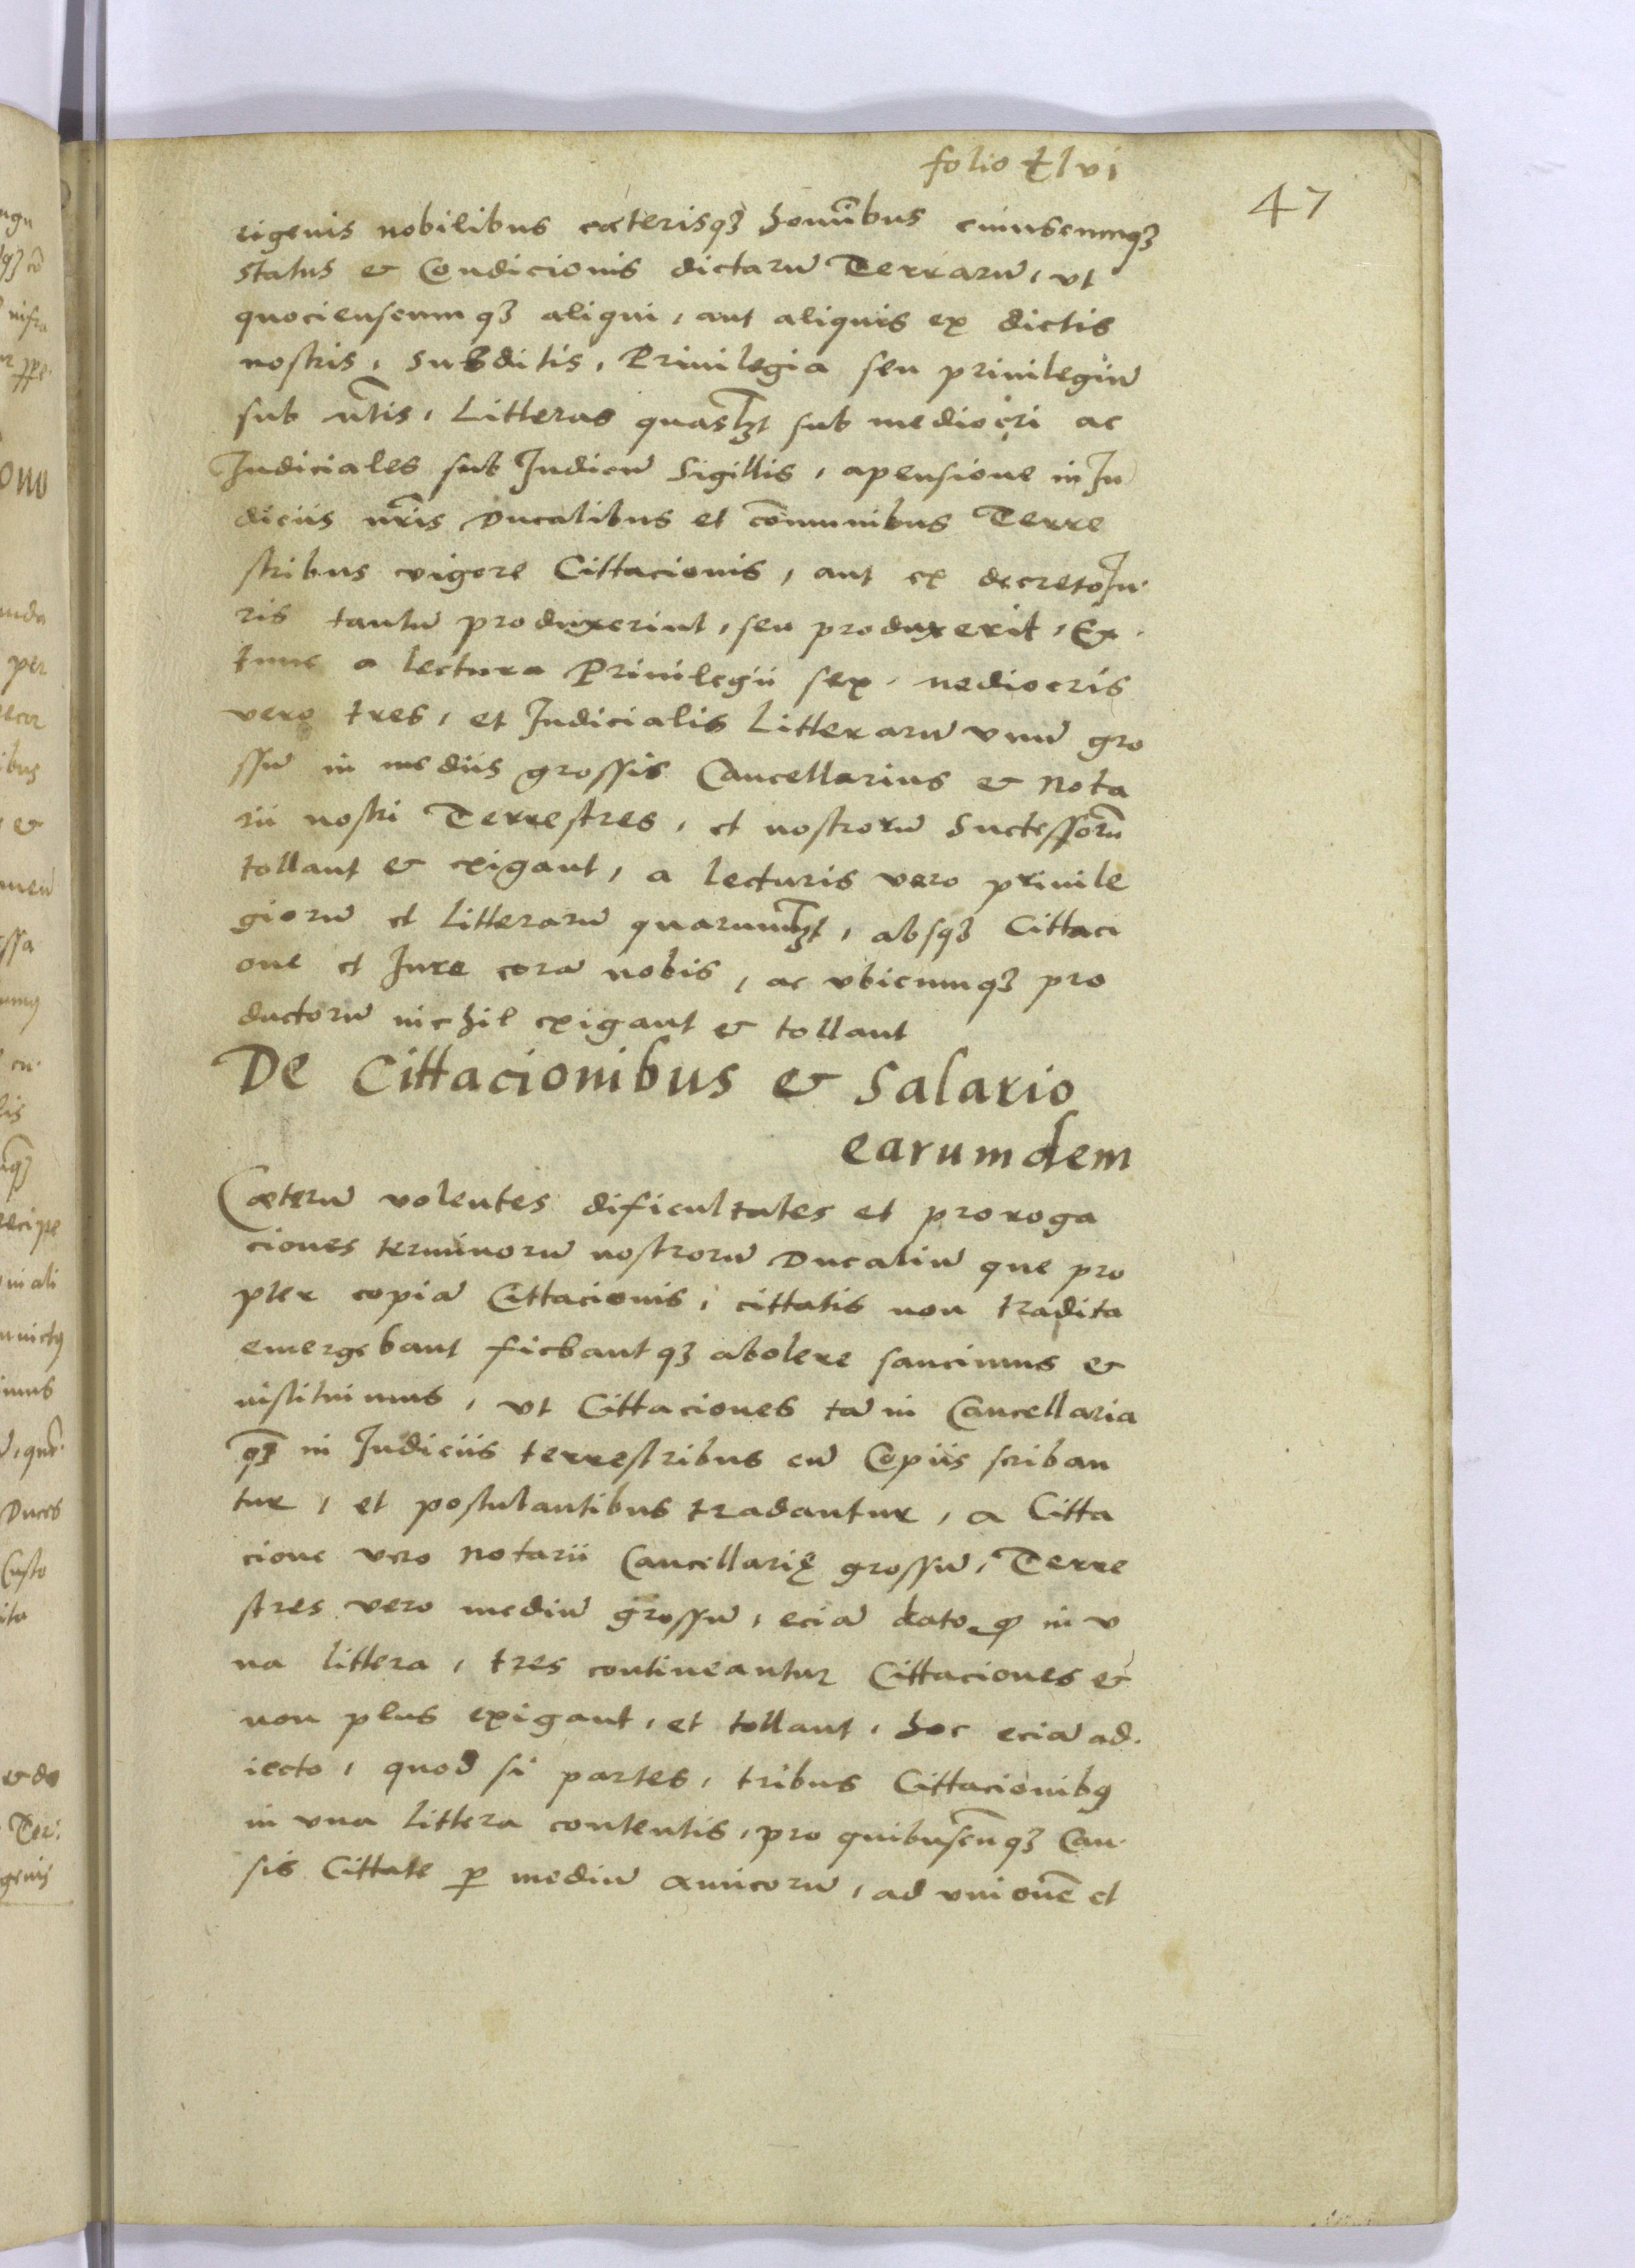 folio xlvi
47
rigenis nobilibus cæterisqꝫ hominibus cuiuscumqꝫ
status & Condicionis dictarū Terrarū, vt
quocienscumqꝫ aliqui, aut aliquis ex dictis
nostris, Subditis, Priuilegia seu priuilegiū
sub nr̃is, Litteras quaslꝫt sub mediocri ac
Judiciales sub Judicū Sigillis, apensione in Ju
diciis nr̃is Ducalibus et cōmunibus Terre
stribus vigore Cittacionis, aut ex decreto Ju.
ris tantū produxerint, seu produxerit, Ex.
tunc a lectura Priuilegii sex, mediocris
vero tres, et Judicialis Litterarū vnū gro
ssū in mediis grossis Cancellarius & Nota
rii nostri Terrestres, et nostrorū Successorū
tollant & exigant, a lecturis vero priuile
giorū et litterarū quarumlꝫt, absqꝫ Cittaci
one et Jure corā nobis, ac vbicumqꝫ pro
ductorū nichil exigant & tollant
De Cittacionibus & Salario
earumdem
Cæterū volentes dificultates et proroga
ciones terminorū nostrorū Ducaliū que pro
pter copiā Cittacionis, cittatis non tradita
emergebant fiebantqꝫ abolere sancimus &
instituimus, vt Cittaciones tā in Cancellaria
q̃ꝫ in Judiciis terrestribus cū Copiis scriban
tur, et postulantibus tradantur, a Citta
cione vero Notarii Cancellarię grossū, Terre
stres vero mediū grossū, eciā dato ꝙ in v
na littera, tres contineantur Cittaciones &
non plus exigant, et tollant, hoc eciā ad.
iecto, quod si partes, tribus Cittacionibꝯ
in vna littera contentis, pro quibuscūqꝫ Cau.
sis Cittate ꝑ mediū amicorū, ad vnionē et